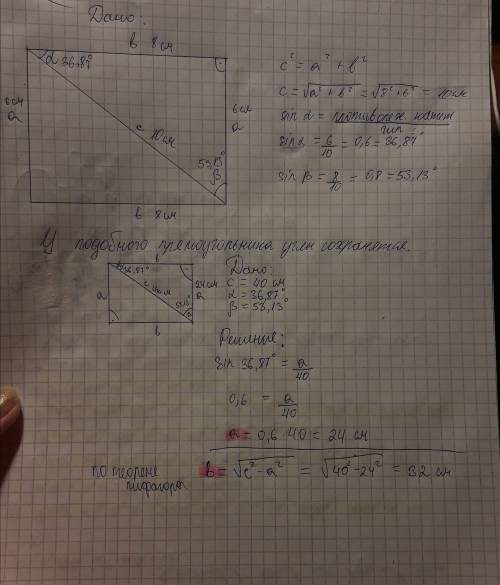 Дано:
b 8 см
α 36,87°
6см
a
c 10см
6см
a
53,13°
β
b 8 см
c² = a² + b²
c = √a² + b² = √8² + 6² = 10см
sin α = противолеж катет
гип
sin α = 6/10 = 0,6 = 36,87°
sin β = 8/10 = 0,8 = 53,13°
У подобного прямоугольника углы сохранятся.
b
36,87°
a
c 40см
24см
a
53,13
b
Дано:
c = 40 см
α = 36,87°
β = 53,13°
Решение:
sin 36,87° = a/40
0,6 = a/40
a = 0,6 · 40 = 24 см
по теореме
пифагора
b = √c² - a² = √40² - 24² = 32 см